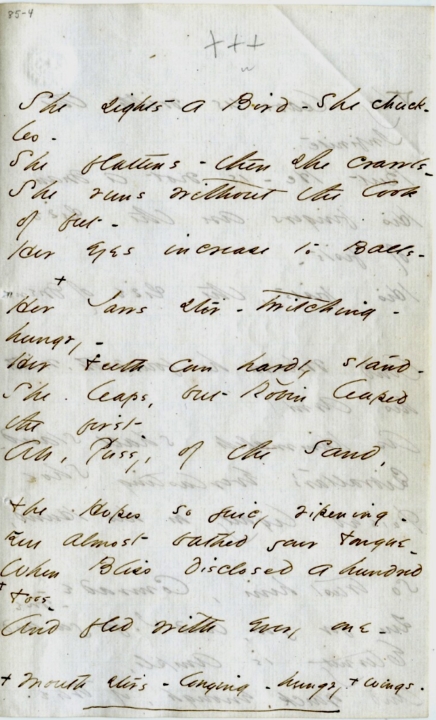 85-4
+++
She sights a Bird - She chuck-
les -
She flattens - then she crawls -
She runs without the look
of feet -
Her eyes increase to Balls -
+
Her Jaws stir - twitching -
hungry -
Her Teeth can hardly stand -
She leaps, but Robin leaped
the first -
Ah, Pussy, of the Sand,
The Hopes so juicy ripening -
You almost bathed your Tongue -
When Bliss disclosed a hundred
+ Toes -
And fled with every one -
+ Mouth stirs - longing - hungry, + wings -